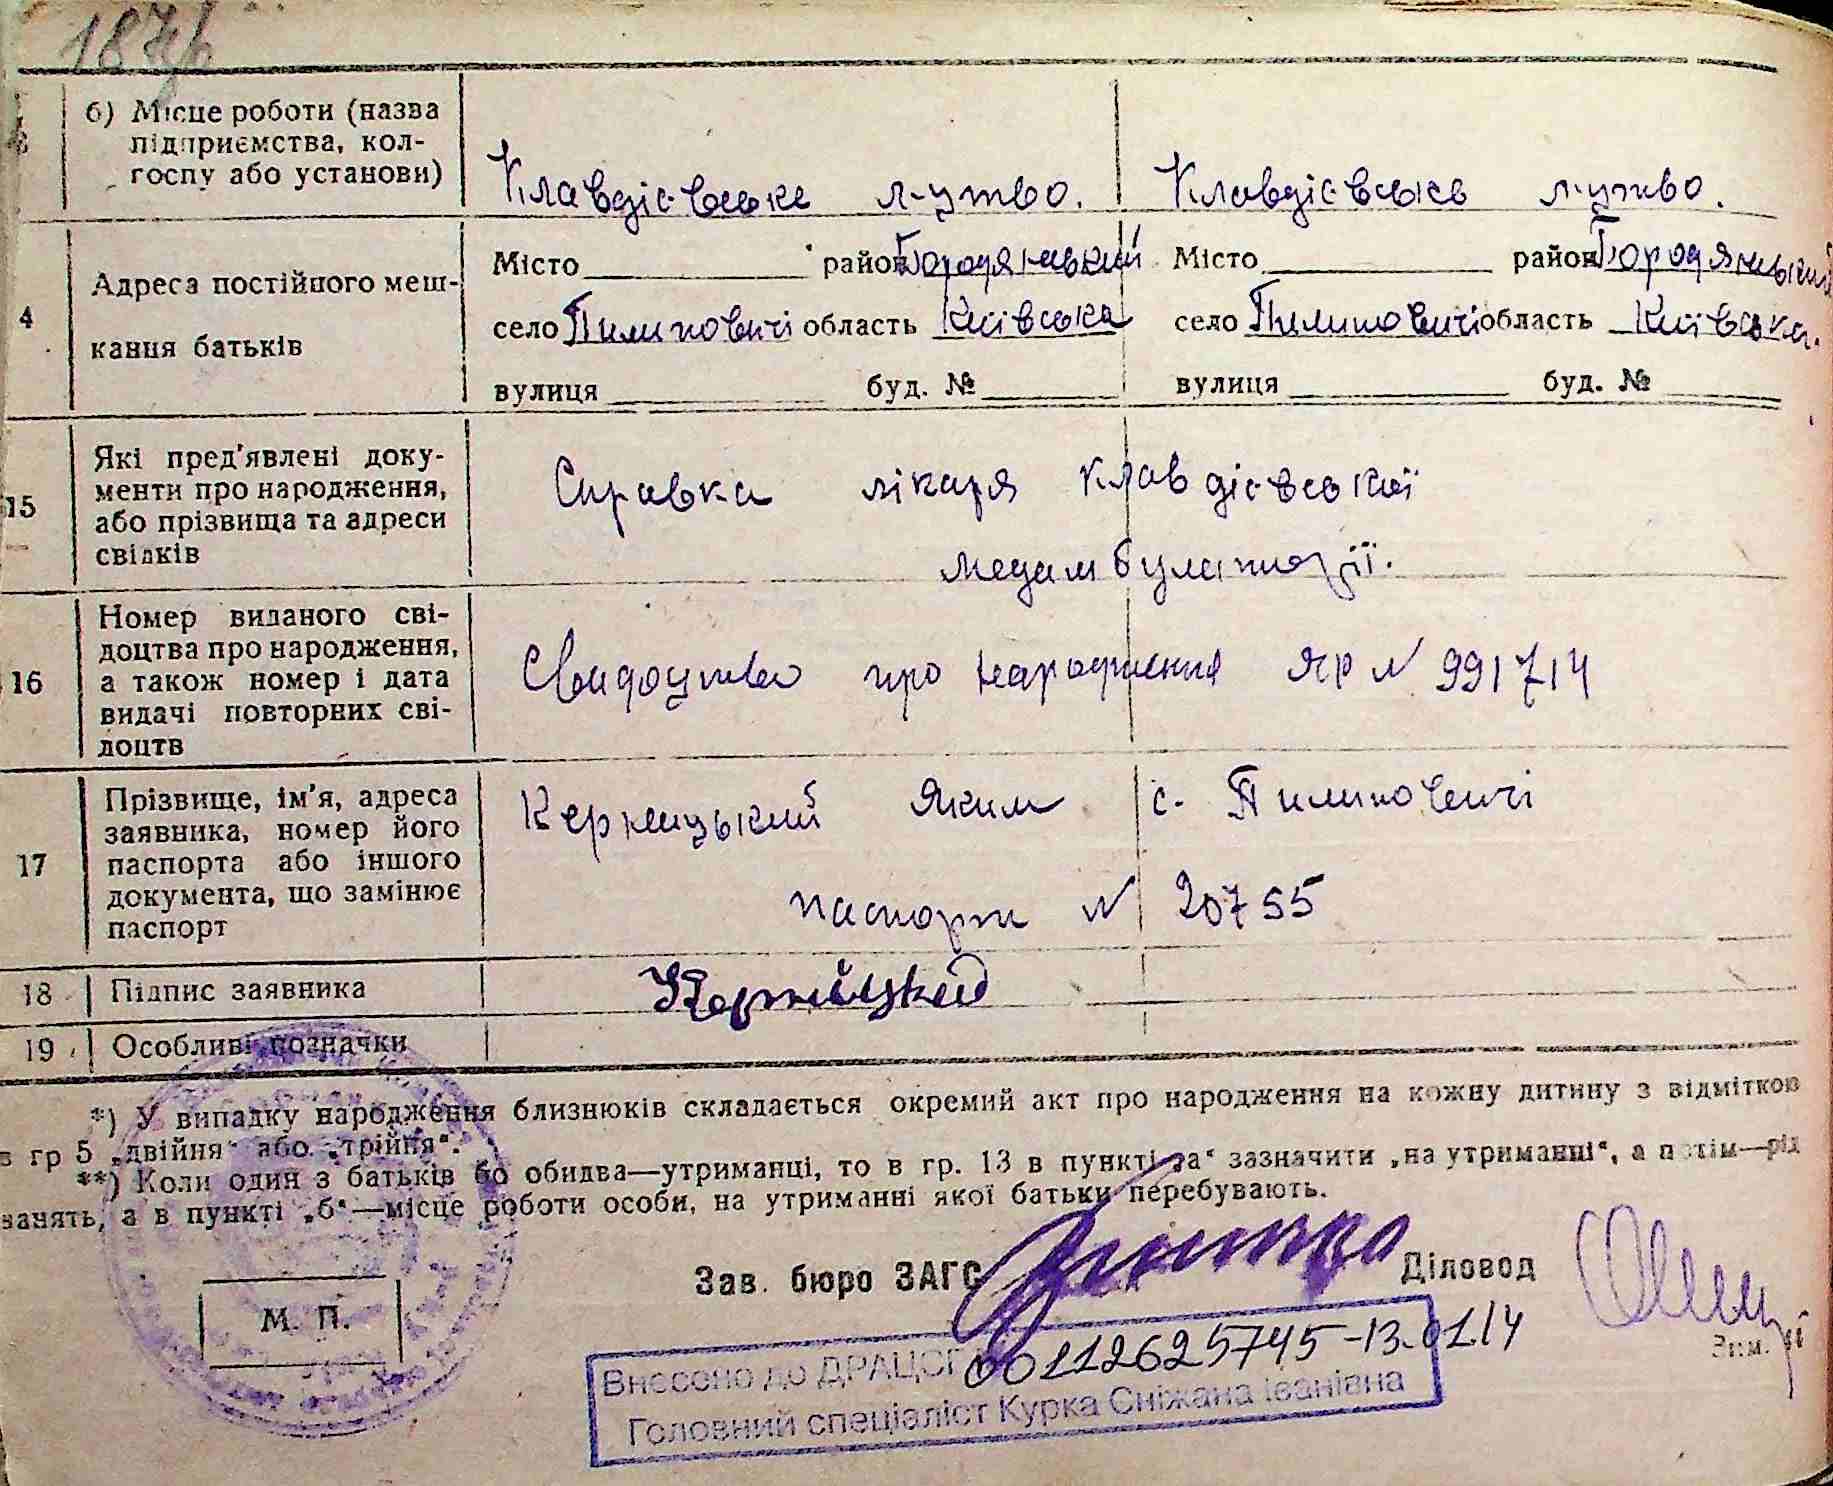 187
б) Місце роботи (назва
підприємства, кол-
госпу або установи)
Клавдієвське л-цтво. Клавдієвське л-цтво.
4
Адреса постійного меш-
кання батьків
Місто район Бородянський Місто район Бородянський
село Пилиповичі область Київська село Пилиповичі область Київська.
вулиця буд. № вулиця буд. №
15
Які пред'явлені доку-
менти про народження,
або прізвища та адреси
свідків
Справка лікаря Клавдієвської
медамбулаторії.
16
Номер виданого сві-
доцтва про народження,
а також номер і дата
видачі повторних сві-
доцтв
Свидоцтво про народження ЯР N 991714
17
Прізвище, ім'я, адреса
заявника, номер його
паспорта або іншого
документа, що замінює
паспорт
Керницький Яким с. Пилиповичі
паспорт N 20755
18 Підпис заявника
19 Особливі позначки
*) У випадку народження близнюків складається окремий акт про народження на кожну дитину з відміткою
в гр 5 „двійня“ або „трійня“.
**) Коли один з батьків бо обидва—утриманці, то в гр. 13 в пункті „а“ зазначити „на утриманні“, а потім—рід
занять, а в пункті „б“—місце роботи особи, на утриманні якої батьки перебувають.
Зав. бюро ЗАГС Діловод
М. П.
Внесено до ДРАЦСГ 00112625745-13.01.14
Головний спеціаліст Курка Сніжана Іванівна